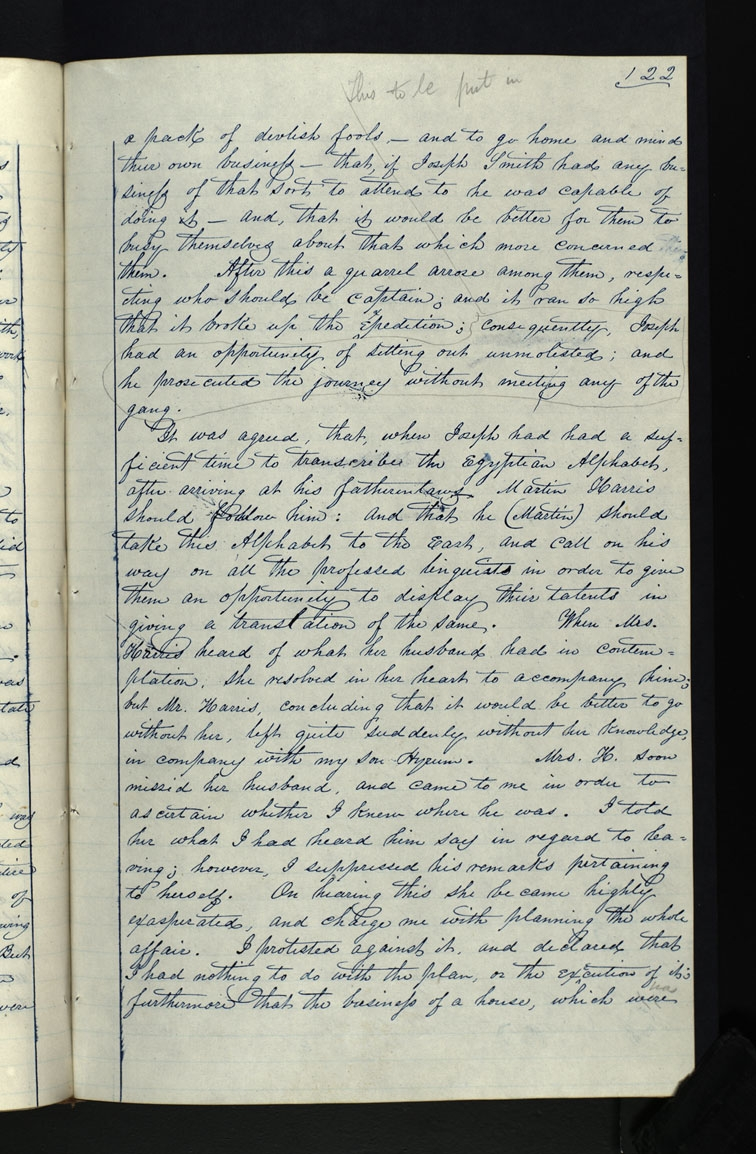 122
This to be put in
a pack of devlish fools,— and to go home and mind
their own business— that, if Joseph Smith had any bu=
siness of that sort to attend to he was capable of
doing it— and, that it would be better for them to
busy themselves about that which more concerned
them. After this a quarrel arose among them, respe=
cting who should be captain; and it ran so high
that it broke up the Expedition; consequently, Joseph
had an opportunity of setting out unmolested; and
he prosecuted the journey without meeting any of the
gang.
It was agreed, that, when Joseph had had a suf=
ficient time to transcribe the Egyptian Alphabet,
after arriving at his fatherinlaws Martin Harris
should follow him: and that he (Martin) should
take this Alphabet to the East, and call on his
way on all the professed linguists in order to give
them an opportunity to display their talents in
giving a translation of the same. When Mrs.
Harris heard of what her husband had in contem=
plation, she resolved in her heart to accompany him;
but Mr. Harris, concluding that it would be better to go
without her, left quite suddenly without her knowledge,
in company with my son Hyrum. Mrs. H. soon
missid her husband, and came to me in order to
ascertain whether I knew where he was. I told
her what I had heard him say in regard to lea=
ving; however, I suppressed his remarks pertaining
to herself. On hearing this she became highly
exasperated, and charge me with planning the whole
affair. I protested against it, and declared that
I had nothing to do with the plan, or the execution of it:
furthermore that the business of a house, which were